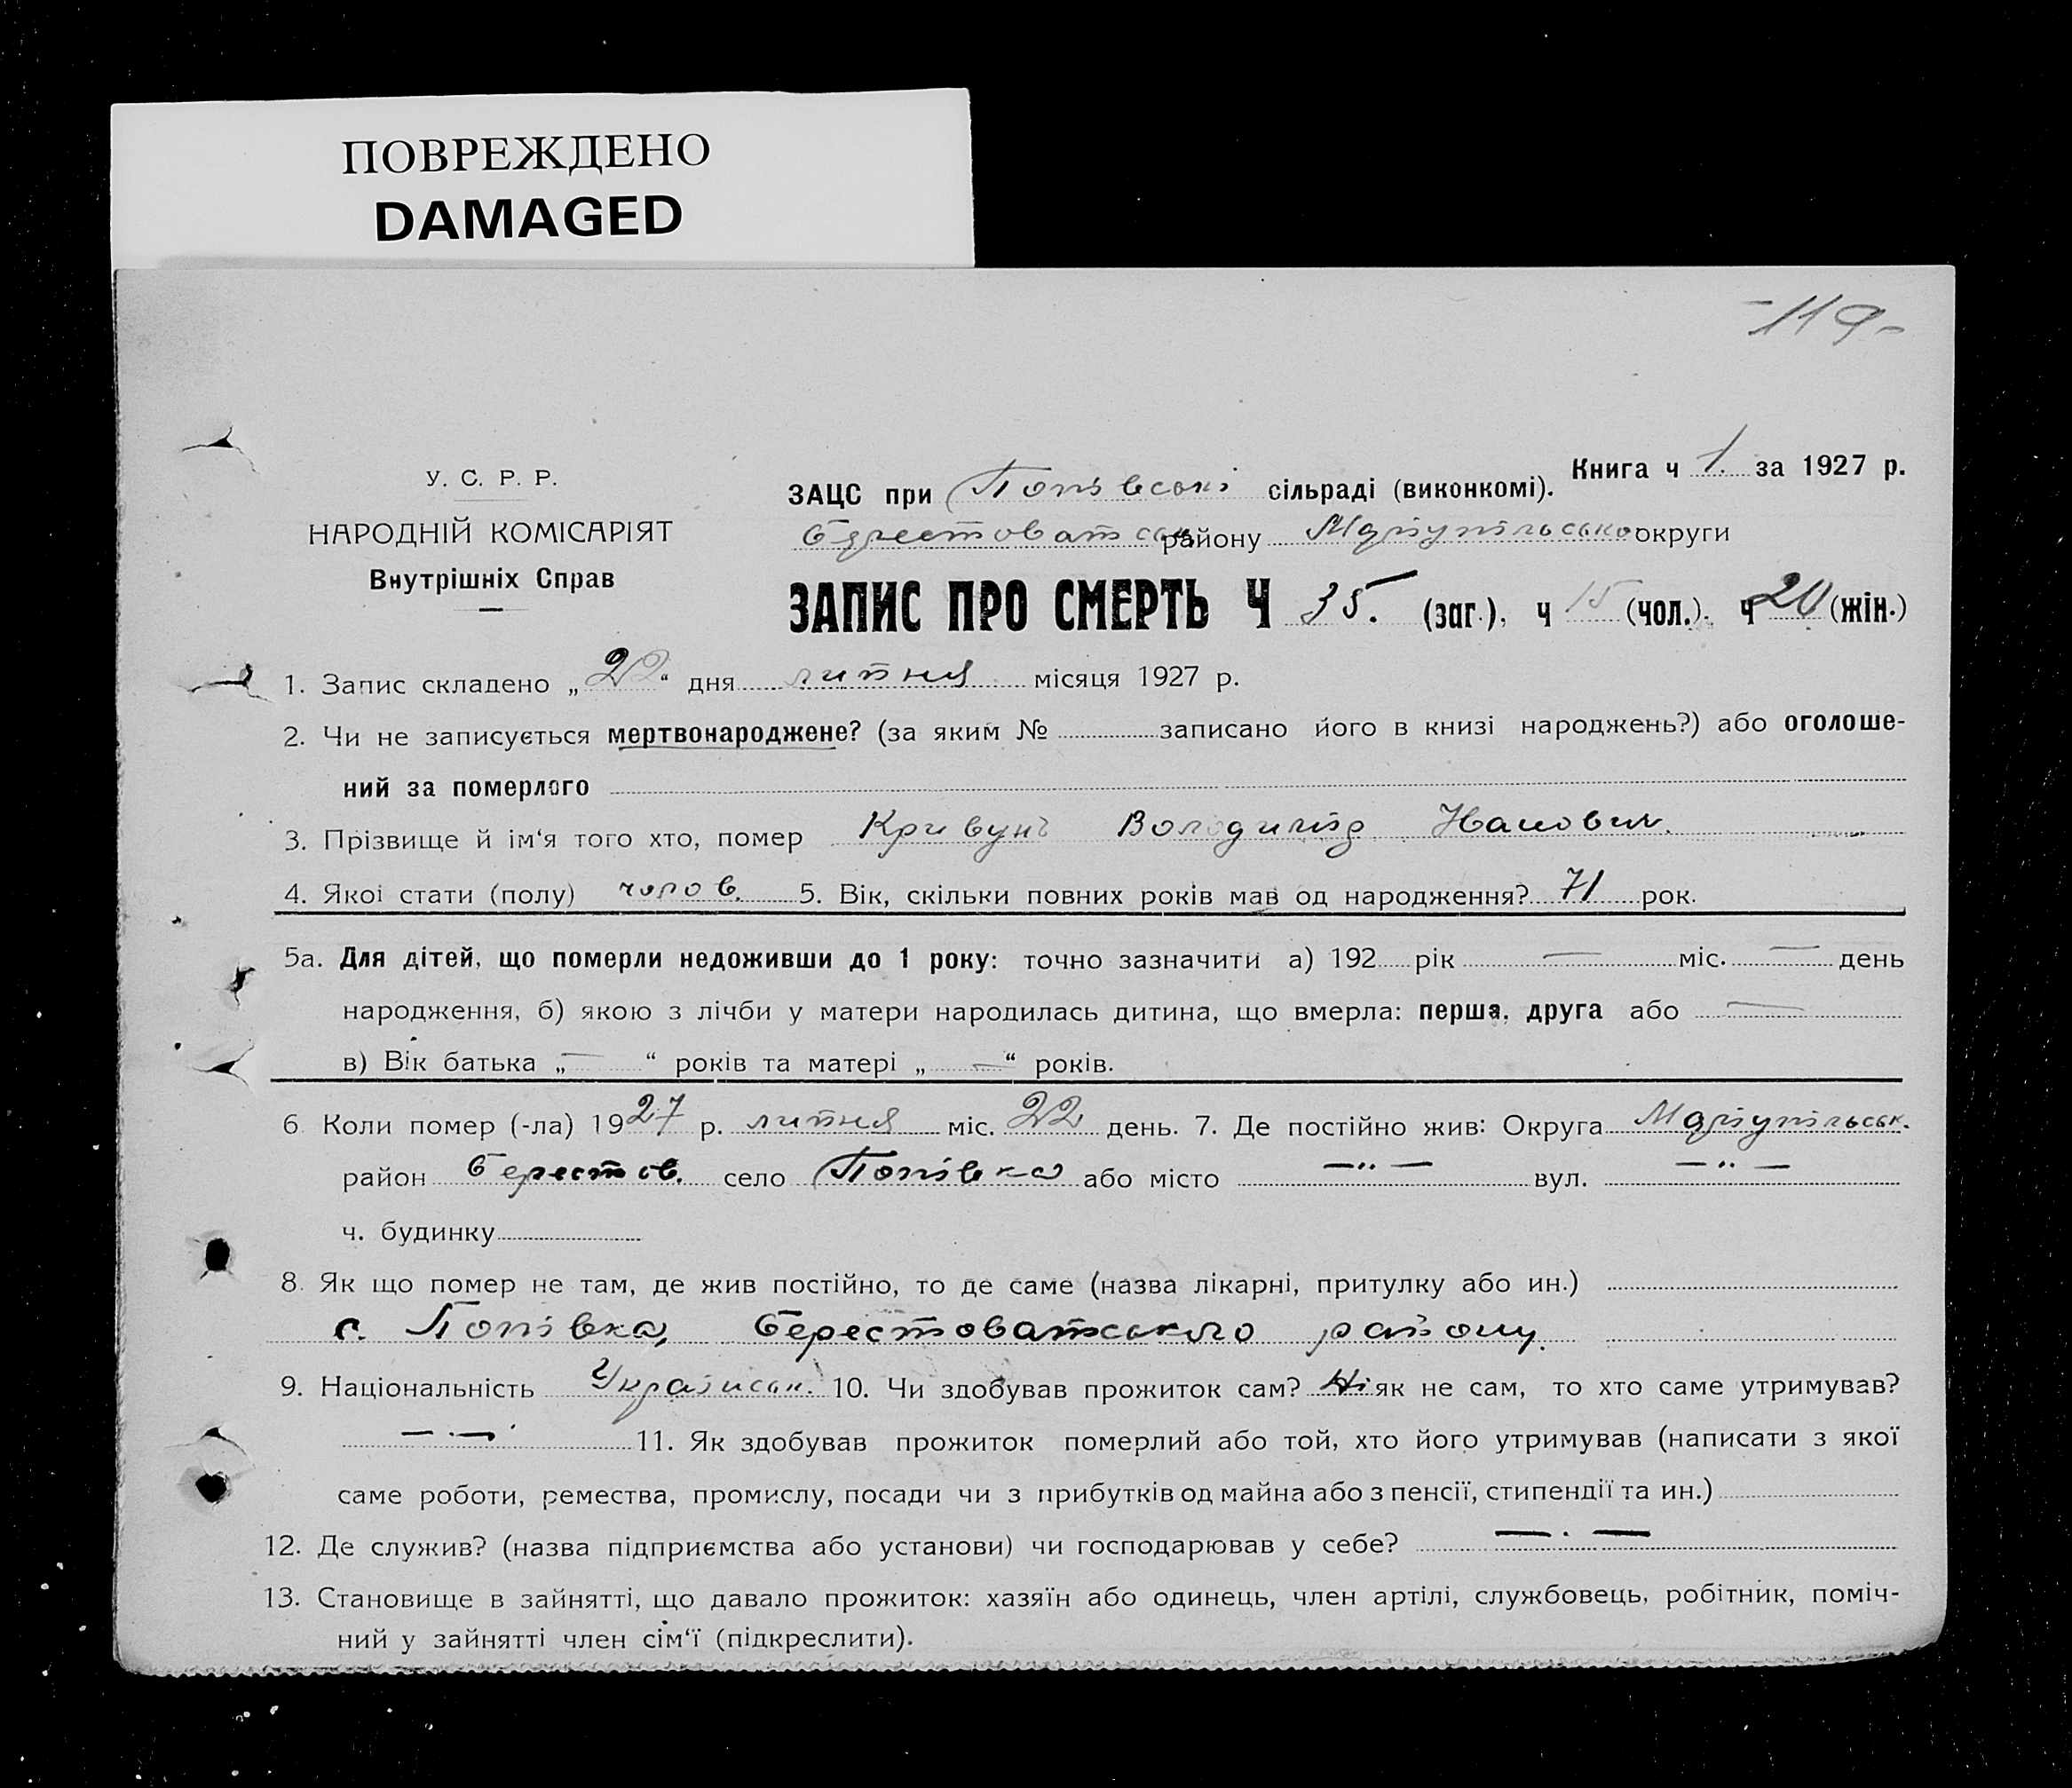 ПОВРЕЖДЕНО
DAMAGED
-119-
Книга ч 1. за 1927 р.
У. С. Р. Р.
ЗАЦС при Попівські сільраді (виконкомі).
НАРОДНІЙ КОМІСАРІЯТ
Берестоватськ району Маріупільсько округи
Внутрішніх Справ
ЗАПИС ПРО СМЕРТЬ Ч 35. (заг.), ч 15 (чол.). ч 20 (жін.)
1. Запис складено „22“ дня липня місяця 1927 р.
2. Чи не записується мертвонароджене? (за яким № записано його в книзі народжень?) або оголоше-
ний за померлого
3. Прізвище й ім‘я того хто, помер Кривунъ Володимір
4. Якої стати (полу) чолов. 5. Вік, скільки повних років мав од народження? 71 рок.
5а. Для дітей, що померли недоживши до 1 року: точно зазначити а) 192 рік — міс. — день
народження, б) якою з лічби у матери народилась дитина, що вмерла: перша, друга або —
в) Вік батька „ — “ років та матері „ — “ років.
6 Коли помер (-ла) 1927 р. липня міс. 22 день. 7. Де постійно жив: Округа Маріупільськ.
район Берестов. село Попівка або місто —··— вул. —··—
ч. будинку
8. Як що помер не там, де жив постійно, то де саме (назва лікарні, притулку або ин.)
с. Попівка, Берестоватського району.
9. Національність Українськ. 10. Чи здобував прожиток сам? Ні як не сам, то хто саме утримував?
— · — 11. Як здобував прожиток померлий або той, хто його утримував (написати з якої
саме роботи, ремества, промислу, посади чи з прибутків од майна або з пенсії, стипендії та ин.)
12. Де служив? (назва підприємства або установи) чи господарював у себе? — · —
13. Становище в зайнятті, що давало прожиток: хазяїн або одинець, член артілі, службовець, робітник, поміч-
ний у зайнятті член сім‘ї (підкреслити).